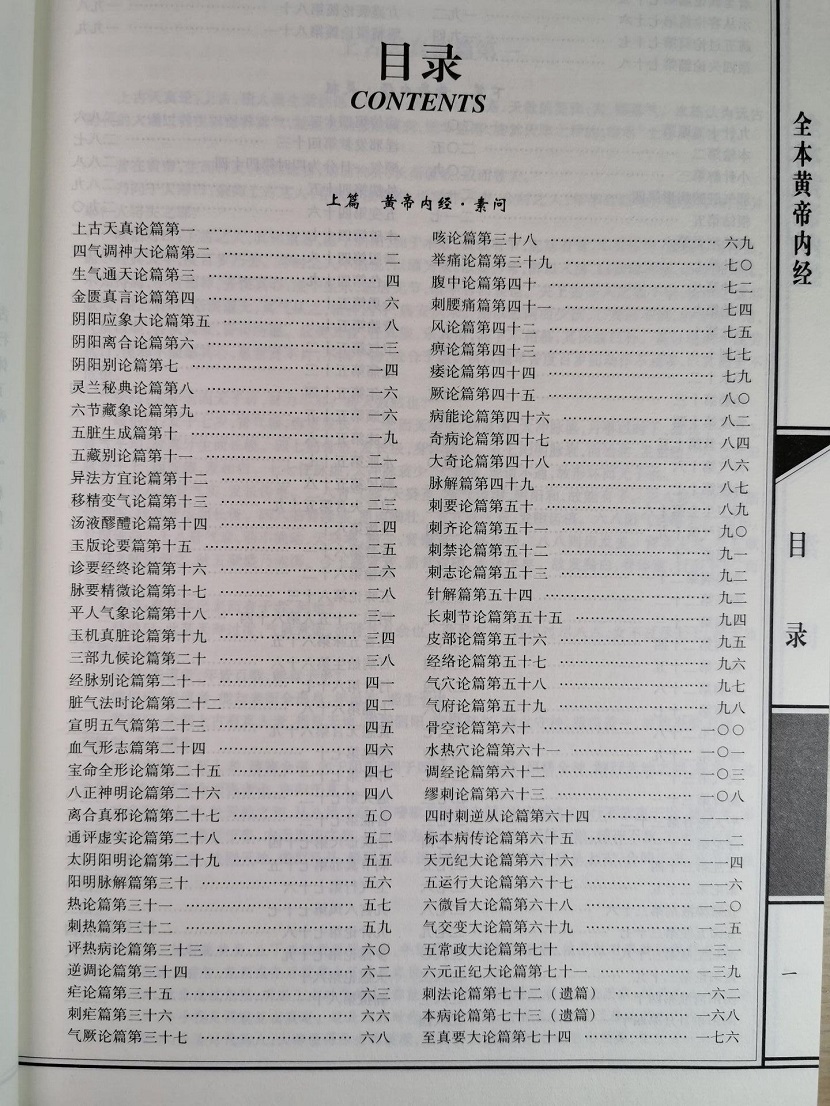 目录
CONTENTS
上篇 黄帝内经·素问
上古天真论篇第一 …… 一
四气调神大论篇第二 …… 二
生气通天论篇第三 …… 四
金匮真言论篇第四 …… 六
阴阳应象大论篇第五 …… 八
阴阳离合论篇第六 …… 一三
阴阳别论篇第七 …… 一四
灵兰秘典论篇第八 …… 一六
六节藏象论篇第九 …… 一六
五脏生成篇第十 …… 一九
五藏别论篇第十一 …… 二一
异法方宜论篇第十二 …… 二二
移精变气论篇第十三 …… 二三
汤液醪醴论篇第十四 …… 二四
玉版论要篇第十五 …… 二五
诊要经终论篇第十六 …… 二六
脉要精微论篇第十七 …… 二八
平人气象论篇第十八 …… 三一
玉机真脏论篇第十九 …… 三四
三部九候论篇第二十 …… 三八
经脉别论篇第二十一 …… 四一
脏气法时论篇第二十二 …… 四二
宣明五气篇第二十三 …… 四五
血气形志篇第二十四 …… 四六
宝命全形论篇第二十五 …… 四七
八正神明论篇第二十六 …… 四八
离合真邪论篇第二十七 …… 五〇
通评虚实论篇第二十八 …… 五二
太阴阳明论篇第二十九 …… 五五
阳明脉解篇第三十 …… 五六
热论篇第三十一 …… 五七
刺热篇第三十二 …… 五九
评热病论篇第三十三 …… 六〇
逆调论篇第三十四 …… 六二
疟论篇第三十五 …… 六三
刺疟篇第三十六 …… 六六
气厥论篇第三十七 …… 六八
咳论篇第三十八 …… 六九
举痛论篇第三十九 …… 七〇
腹中论篇第四十 …… 七二
刺腰痛篇第四十一 …… 七四
风论篇第四十二 …… 七五
痹论篇第四十三 …… 七七
痿论篇第四十四 …… 七九
厥论篇第四十五 …… 八〇
病能论篇第四十六 …… 八二
奇病论篇第四十七 …… 八四
大奇论篇第四十八 …… 八六
脉解篇第四十九 …… 八七
刺要论篇第五十 …… 八九
刺齐论篇第五十一 …… 九〇
刺禁论篇第五十二 …… 九一
刺志论篇第五十三 …… 九二
针解篇第五十四 …… 九二
长刺节论篇第五十五 …… 九四
皮部论篇第五十六 …… 九五
经络论篇第五十七 …… 九六
气穴论篇第五十八 …… 九七
气府论篇第五十九 …… 九八
骨空论篇第六十 …… 一〇〇
水热穴论篇第六十一 …… 一〇一
调经论篇第六十二 …… 一〇三
缪刺论篇第六十三 …… 一〇八
四时刺逆从论篇第六十四 …… 一一一
标本病传论篇第六十五 …… 一一二
天元纪大论篇第六十六 …… 一一四
五运行大论篇第六十七 …… 一一六
六微旨大论篇第六十八 …… 一二〇
气交变大论篇第六十九 …… 一二五
五常政大论篇第七十 …… 一三一
六元正纪大论篇第七十一 …… 一三九
刺法论篇第七十二（遗篇） …… 一六二
本病论篇第七十三（遗篇） …… 一六八
至真要大论篇第七十四 …… 一七六
全本黄帝内经
目录
一